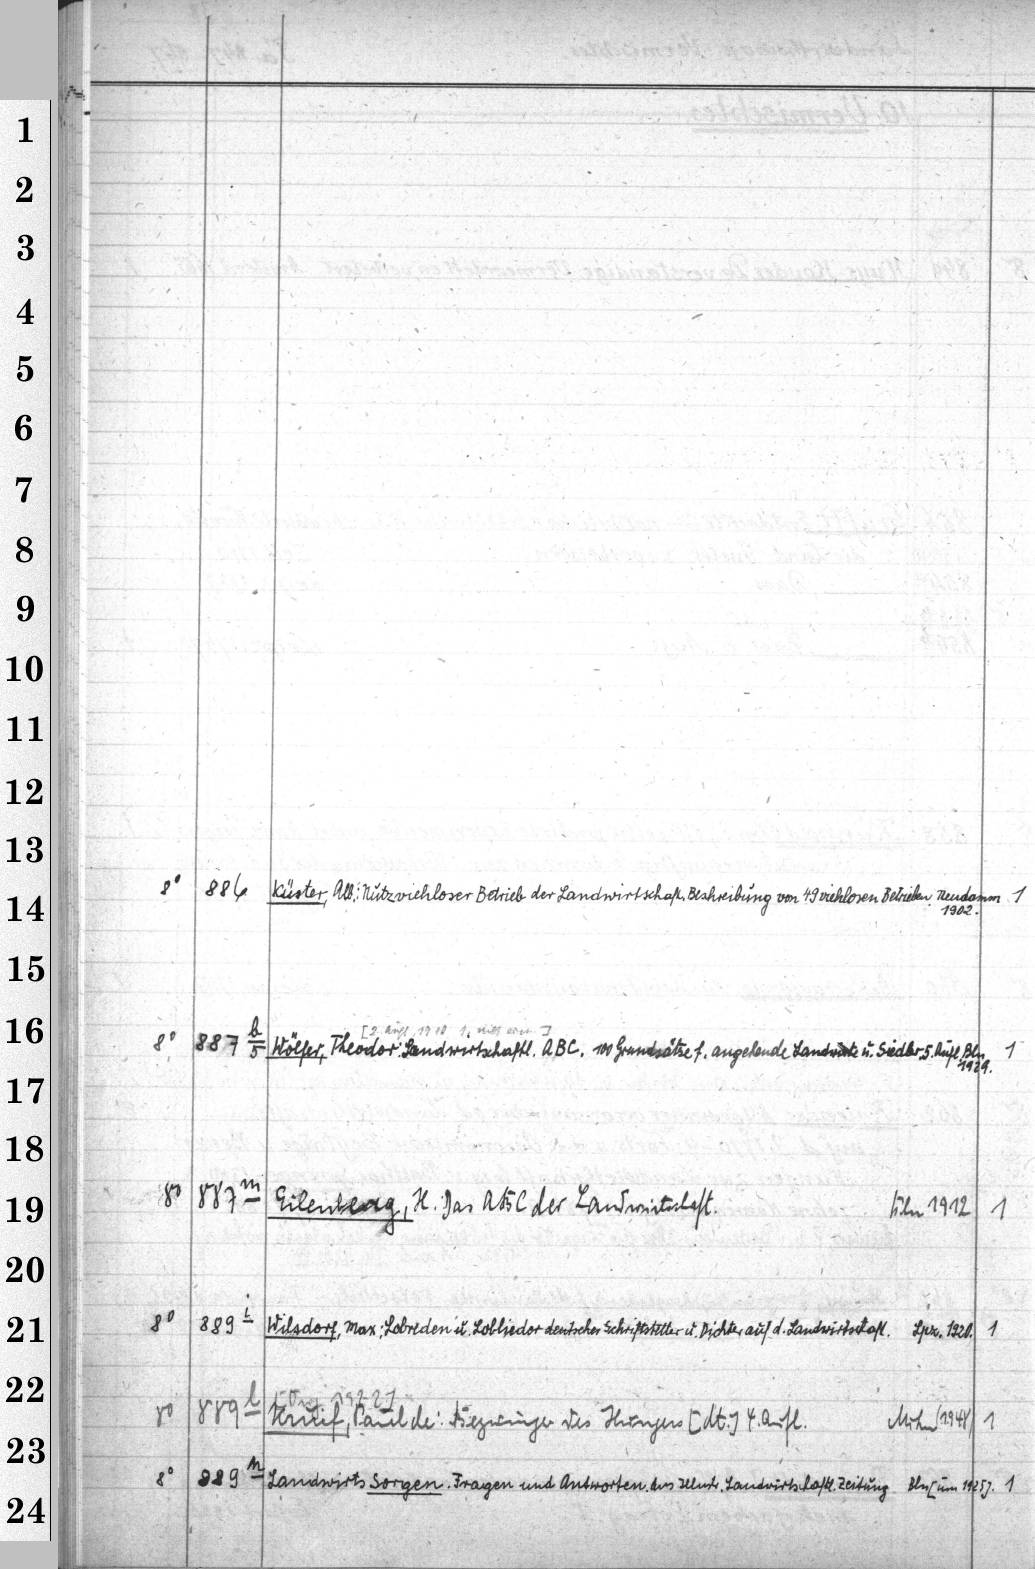 1
2
3
4
5
6
7
8
9
10
11
12
13
14
15
16
17
18
19
20
21
22
23
24
8° 886 Küster, Alb.: Nutzviehloser Betrieb der Landwirtschaft. Beschreibung von 49 viehlosen Betrieben. Neudamm 1
1902.
[2. Aufl. 1910 1. nicht ersch.]
8° 887 b/5 Wölfer, Theodor: Landwirtschaftl. ABC. 100 Grundsätze f. angehende Landwirte u. Siedler. 5. Aufl. Bln. 1
1929.
8° 887 m Eilenberg, H.: Das ABC der Landwirtschaft. Köln 1912 1
8° 889 i Wilsdorf, Max: Lobreden u. Loblieder deutscher Schriftsteller u. Dichter auf d. Landwirtschaft. Lpz. 1920. 1
1922]
8° 889 l Kruif, Paul de: Bezwinger des Hungers [dt.] 4. Aufl. Mchn (1948) 1
8° 889 n Landwirts Sorgen. Fragen und Antworten aus Illustr. Landwirtschaftl. Zeitung Bln [um 1925]. 1